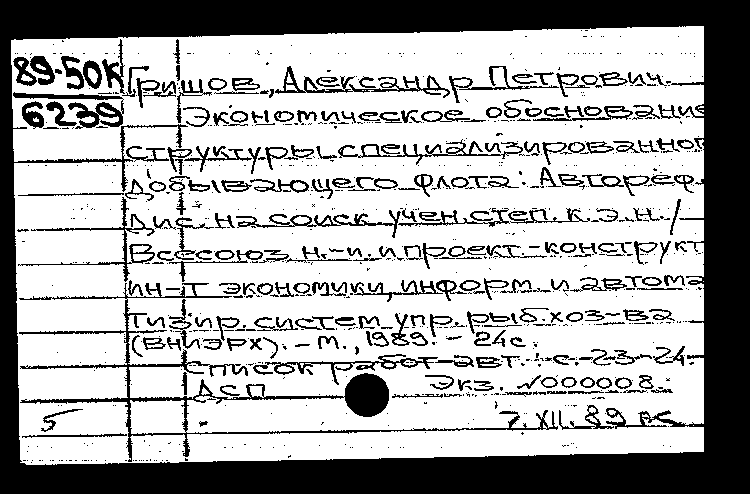 89-50К
6239
Гришов, Александр Петрович.
Экономическое обоснование
структуры специализированног
добывающего флота: Автореф.
дис. на соиск. учен. степ. к.э.н. /
Всесоюз. н.-и. и проект.-конструкт.
ин-т экономики, информ. и автома
тизир. систем упр. рыб. хоз-ва
(ВНИЭРХ). - М., 1989. - 24с.
Список работ авт.: с. 23-24.
ДСП Экз. №000008.
5 7.XII.89